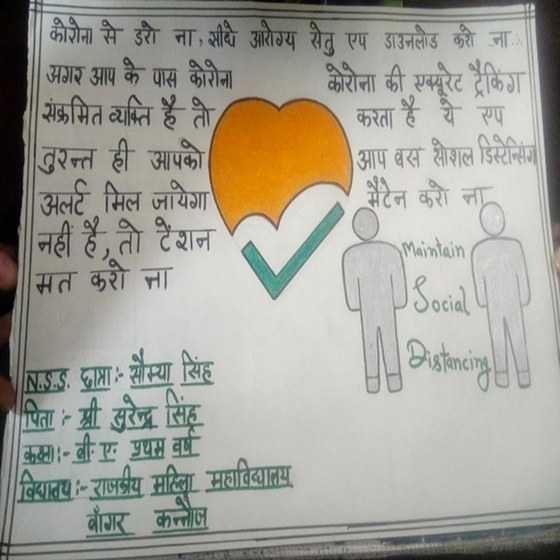 कोरोना से डरो ना, सीधे आरोग्य सेतु एप डाउनलोड करो ना..
अगर आप के पास कोरोना
संक्रमित व्यक्ति है तो
तुरन्त ही आपको
अलर्ट मिल जायेगा
नहीं है, तो टेंशन
मत करो ना
कोरोना की एक्यूरेट ट्रैकिंग
करता है ये एप
आप बस सोशल डिस्टेन्सिंग
मैंटेन करो ना
Maintain
Social
Distancing
N.S.S. छात्रा:- सौम्या सिंह
पिता:- श्री सुरेन्द्र सिंह
कक्षा:- बी. ए. प्रथम वर्ष
विद्यालय:- राजकीय महिला महाविद्यालय
बाँगर कन्नौज